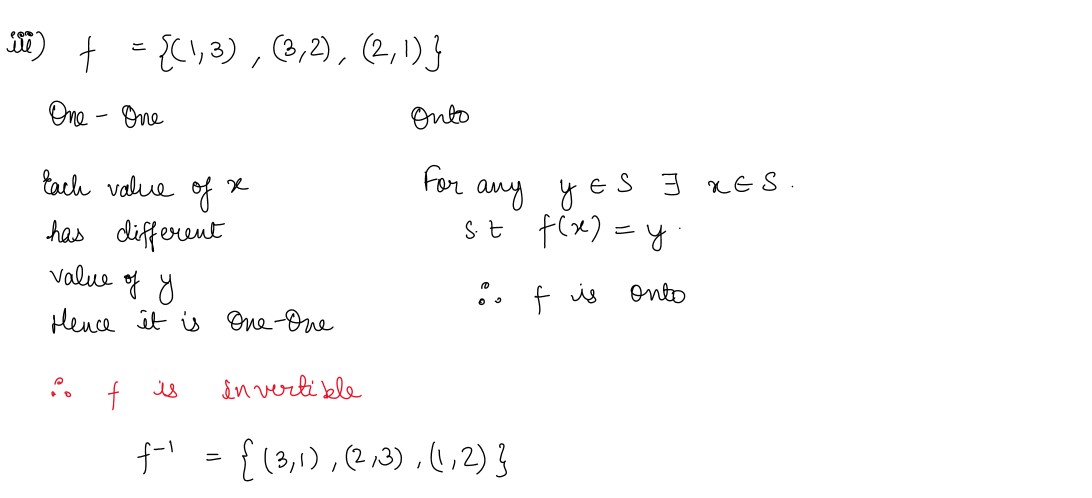 iii) f = {(1,3), (3,2), (2,1)}
One - One
Each value of x
has different
value of y
Hence it is One-One
Onto
For any y ∈ S ∃ x ∈ S.
s.t f(x) = y.
∴ f is onto
∴ f is invertible
f⁻¹ = {(3,1), (2,3), (1,2)}